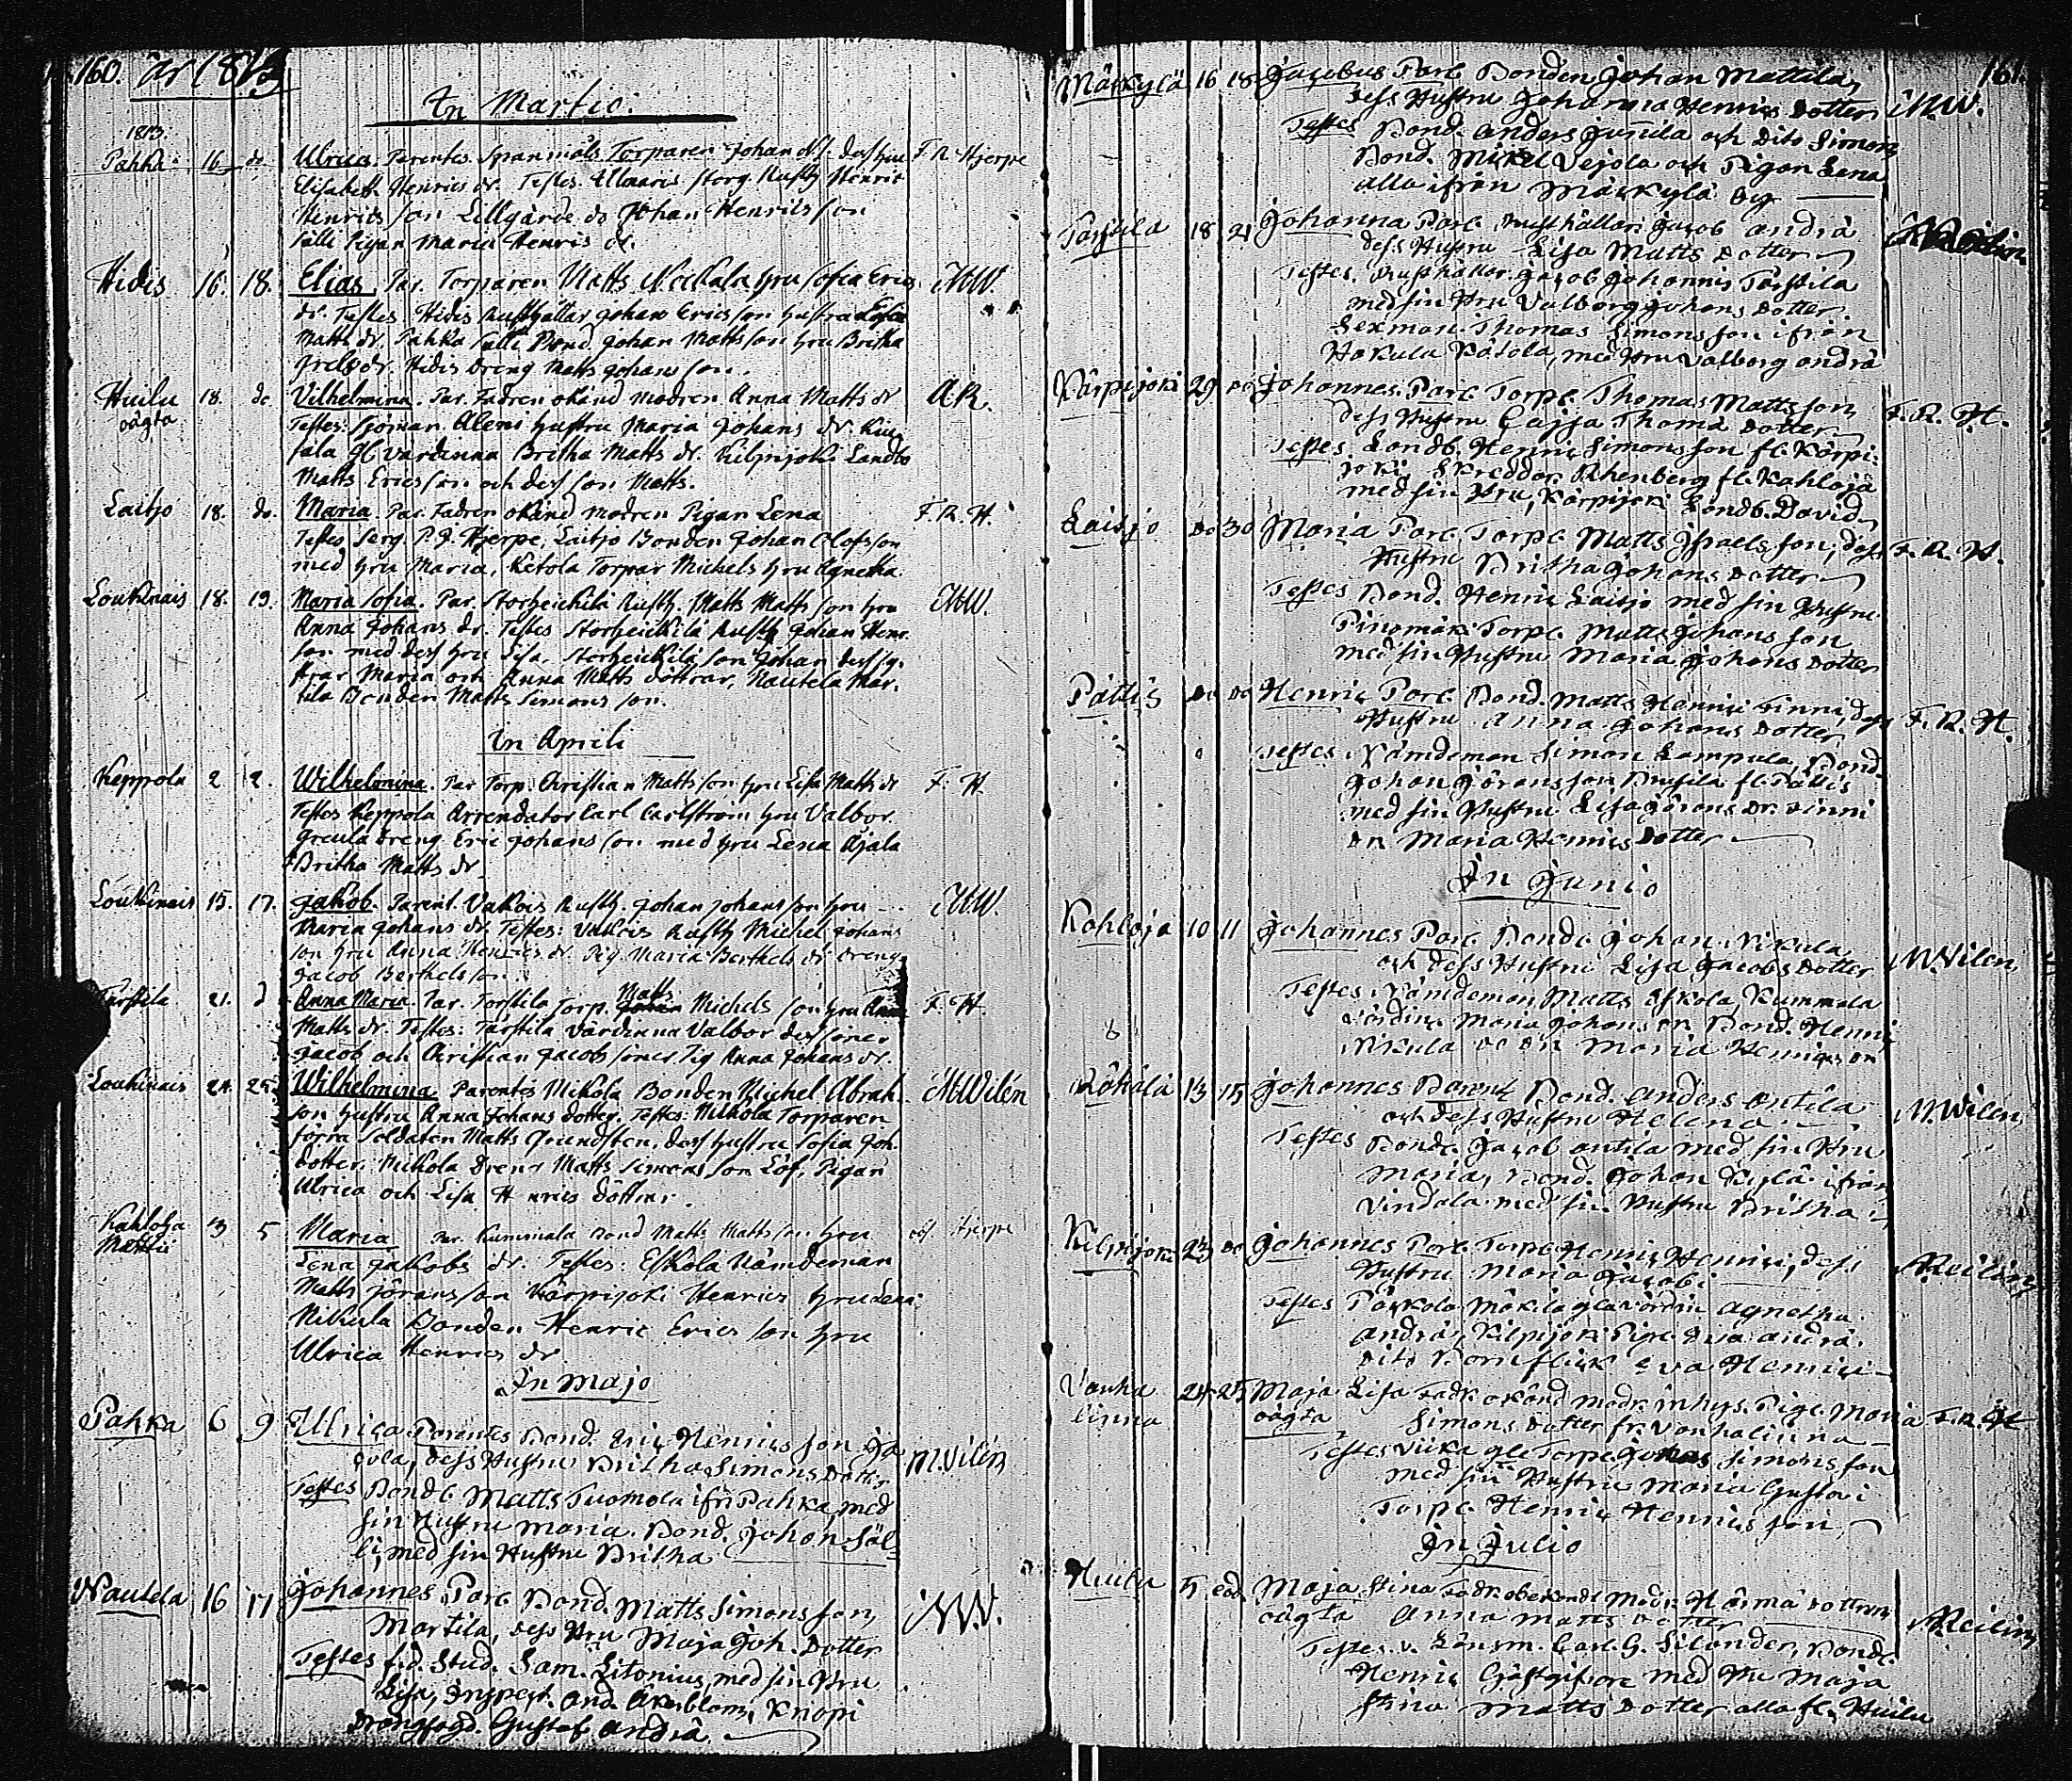 160. År 1813
In Martio.
1813.
Pahka 16 do Ulrica. Parentes. Spanmåls Torparen Johan hru F. R. Hjerpe
Elisabeth Henrics dr. Testes. storg. Rusth. Henric
Henrics son Lillgärde do Johan Henrics son
Sälli Pigan Maria Henrics dr.
Hidis 16. 18. Elias. Par. Torparen Matts hru Sofia Erics MW.
dr. Testes Hidis Rusthållar Johan Ericsson hustru Lisa
Matts dr. Pahka Sälli Bond Johan Mattsson hru Britha
dr. Hidis Dreng Matts Johansson.
Huilu 18. do Vilhelmina. Par. Fadren okänd modren Anna Matts dr A.R.
oägta Testes: Sjöman Aleni hustru Maria Johans dr.
Gl. värdinna Britha Matts dr. Kilpijoki Landb.
Matts Ericsson och dess son Matts.
Laitjo 18. do. Maria. Par. Fadren okänd modren Pigan Lena F. R. H.
Testes Serg. P. J. Hjerpe, Laitjo Bonden Johan Olofsson
med hru Maria, Ketola Torpar Michels hru Agnetha.
Loukinais 18. 19. Maria Sofia. Par. Storheickilä Rusth. Matts Matts son hru MW.
Anna Johans dr. Testes Storheickilä Rusth Johan Henr.
son med dess hru Lisa, Storheickilä son Johan dess sy.
strar Maria och Anna Matts döttrar, Nautela Mar-
tila Bonden Matts Simons son.
In Aprili
Keppola 2 2. Wilhelmina. Par Torp. Christian Matts son hru Lisa Matts dr F. H.
Testes Keppola Arrendator Carl Carlström hru Valbor.
Dreng Eric Johans son med hru Lena Äjälä
Britha Matts dr.
Loukinais 15. 17. Jakob. Parent. Vakois Rusth. Johan Johans son hru MW.
Maria Johans dr. Testes: Vakois Rusth Michel Johans
son hru Anna Henrics dr. Pig. Maria Berthels dr Dreng
Jacob Berthels son.
Tarstila 21. d Anna Maria. Par. Torstila Torp. Matts Michels son hru Anna F. H.
Matts dr. Testes: Tarstila Värdinna Valbor dess söner
Jacob och Christian Jacobs söner, Pig Anna Johans dr.
Loukinais 24. 25. Wilhelmina Parentes Mikola Bonden Michel Abrah. M. Wilén
son hustru Anna Johans dotter. Testes: Mikola Torparen
förra Soldaten Matts Grundsten, dess hustru Sofia Joh.
dotter, Mikola Dreng Matts Simons son Löf, Pigan
Ulrica och Lisa Henrics döttrar.
Kahloja 3 5 Maria Par. Kummala Bond Matts Mattsson hru Hjerpe
Lena Jakobs dr. Testes: Eskola Nämdeman
Matts Jörans son Kärpijoki Henrics hru Lena.
Nikkula Bonden Henric Erics son hru
Ulrica Henrics dr
In Majo
Pahka 6 9 Ulrica Parentes Bond. Eric Henrics son Ja
cola, dess Hustru Britha Simons Dotter M. Vilén
Testes Bonde Matts Tuomola ifr. Pahka, med
sin Hustru Maria. Bond. Johan Säl-
li, med sin Hustru Britha
Nautela 16 17 Johannes Par. Bond. Matts Simons son, MW.
Martila, dess Hru Maja Joh. Dotter
Testes f.d. Stud. Sam. Litonius, med sin Hru
Lisa, Inspect. And. Åkerblom, Knapi
Drängfogd. Gustaf Andrä
161.
Mäskylä 16 18 Jacobus Par. Bonden Johan Mattila,
dess Hustru Johanna Henrics Dotter M.W.
Testes Bond. Anders Junila och Dito Simon
Bond. Mickel Vejola och Pigan Lena
alla ifrån Mäskylä by
Tarstila 18 21 Johanna Par. Rusthållar. Jacob Andrä
dess Hustru Lisa Matts Dotter
Testes. Rusthållar. Jacob Johannis Tarstila
med sin Hru Valborg Johans Dotter
Sexman Thomas Simons son ifrån
Hakula Kätola, med Hru Valborg Andrä
Kärpijoki 29 do Johannes. Par. Torp. Thomas Matts son,
dess Hustru Cajsa Thoma Dotter F. R. H.
Testes. Landb. Henric Simons son fr. Kärpi-
joki. Skreddar. Rhenberg fr. Kahloja
med sin Hru, Kärpijoki Landb. David
Laitjo do 30 Maria Par. Torp. Matts Israels son, dess F. R. H.
Hustru Britha Johans Dotter
Testes Bond. Henric Laitjo med sin Hustru
Pinomäki Torp. Matts Johans son
med sin Hustru Maria Johans Dotter
Pättis do do Henric Par. Bond. Matts Henrici Finni, dess F. R. H.
Hustru Anna Johans Dotter
Testes Nämdeman Simon Lampula, Bond.
Johan Jörans son fr. Pättis
med sin Hustru Lisa Jörans Dr. Finni
Dr. Maria Henrics Dotter
In Junio
Kahloja 10 11 Johannes Par. Bonde Johan Nikula
och dess Hustru Lisa Jacobs Dotter M. Vilen,
Testes Nämdeman Matts Eskola, Kummala
värdin. Maria Johans Dr. Bond. Henric
Nikula Maria Henrics Dr
13 15 Johannes Parent. Bond. Anders Antila M. Vilen,
och dess Hustru Helena
Testes Bonde Jacob Antila med sin Hru
Maria, Bond. Johan Kylä ifrån
Vindala med sin Hustru Britha
Kilpijoki 23 do Johannes Par. Torp. Henric Henrici, dess
Hustru Maria Jacobi
Testes Päckola Mäkilä gla värdin Agnetha
Andrä, Kilpijoki Pig. Eva Andrä.
dito Barnflick Eva Henrici
Vanha 24 25 Maja Lisa Fadr. okänd modr. inhys. Pig. Maria F. R. H
linna oägta Simons Dotter fr. Vanhalinna
Testes Viika gle Torp. Johan Simons son
med sin Hustru Maria Gustavi
Torp. Henric Henrics son,
In Julio
Huilu 5 eod Maja Stina Fadr. obekandt Modr. Dottren
oägta Anna Matts Dotter
Testes. v. Länsm. Carl G. Silander, Bond.
Henric Gästgifvare med Hru Maja
Stina Matts Dotter alla fr. Huilu